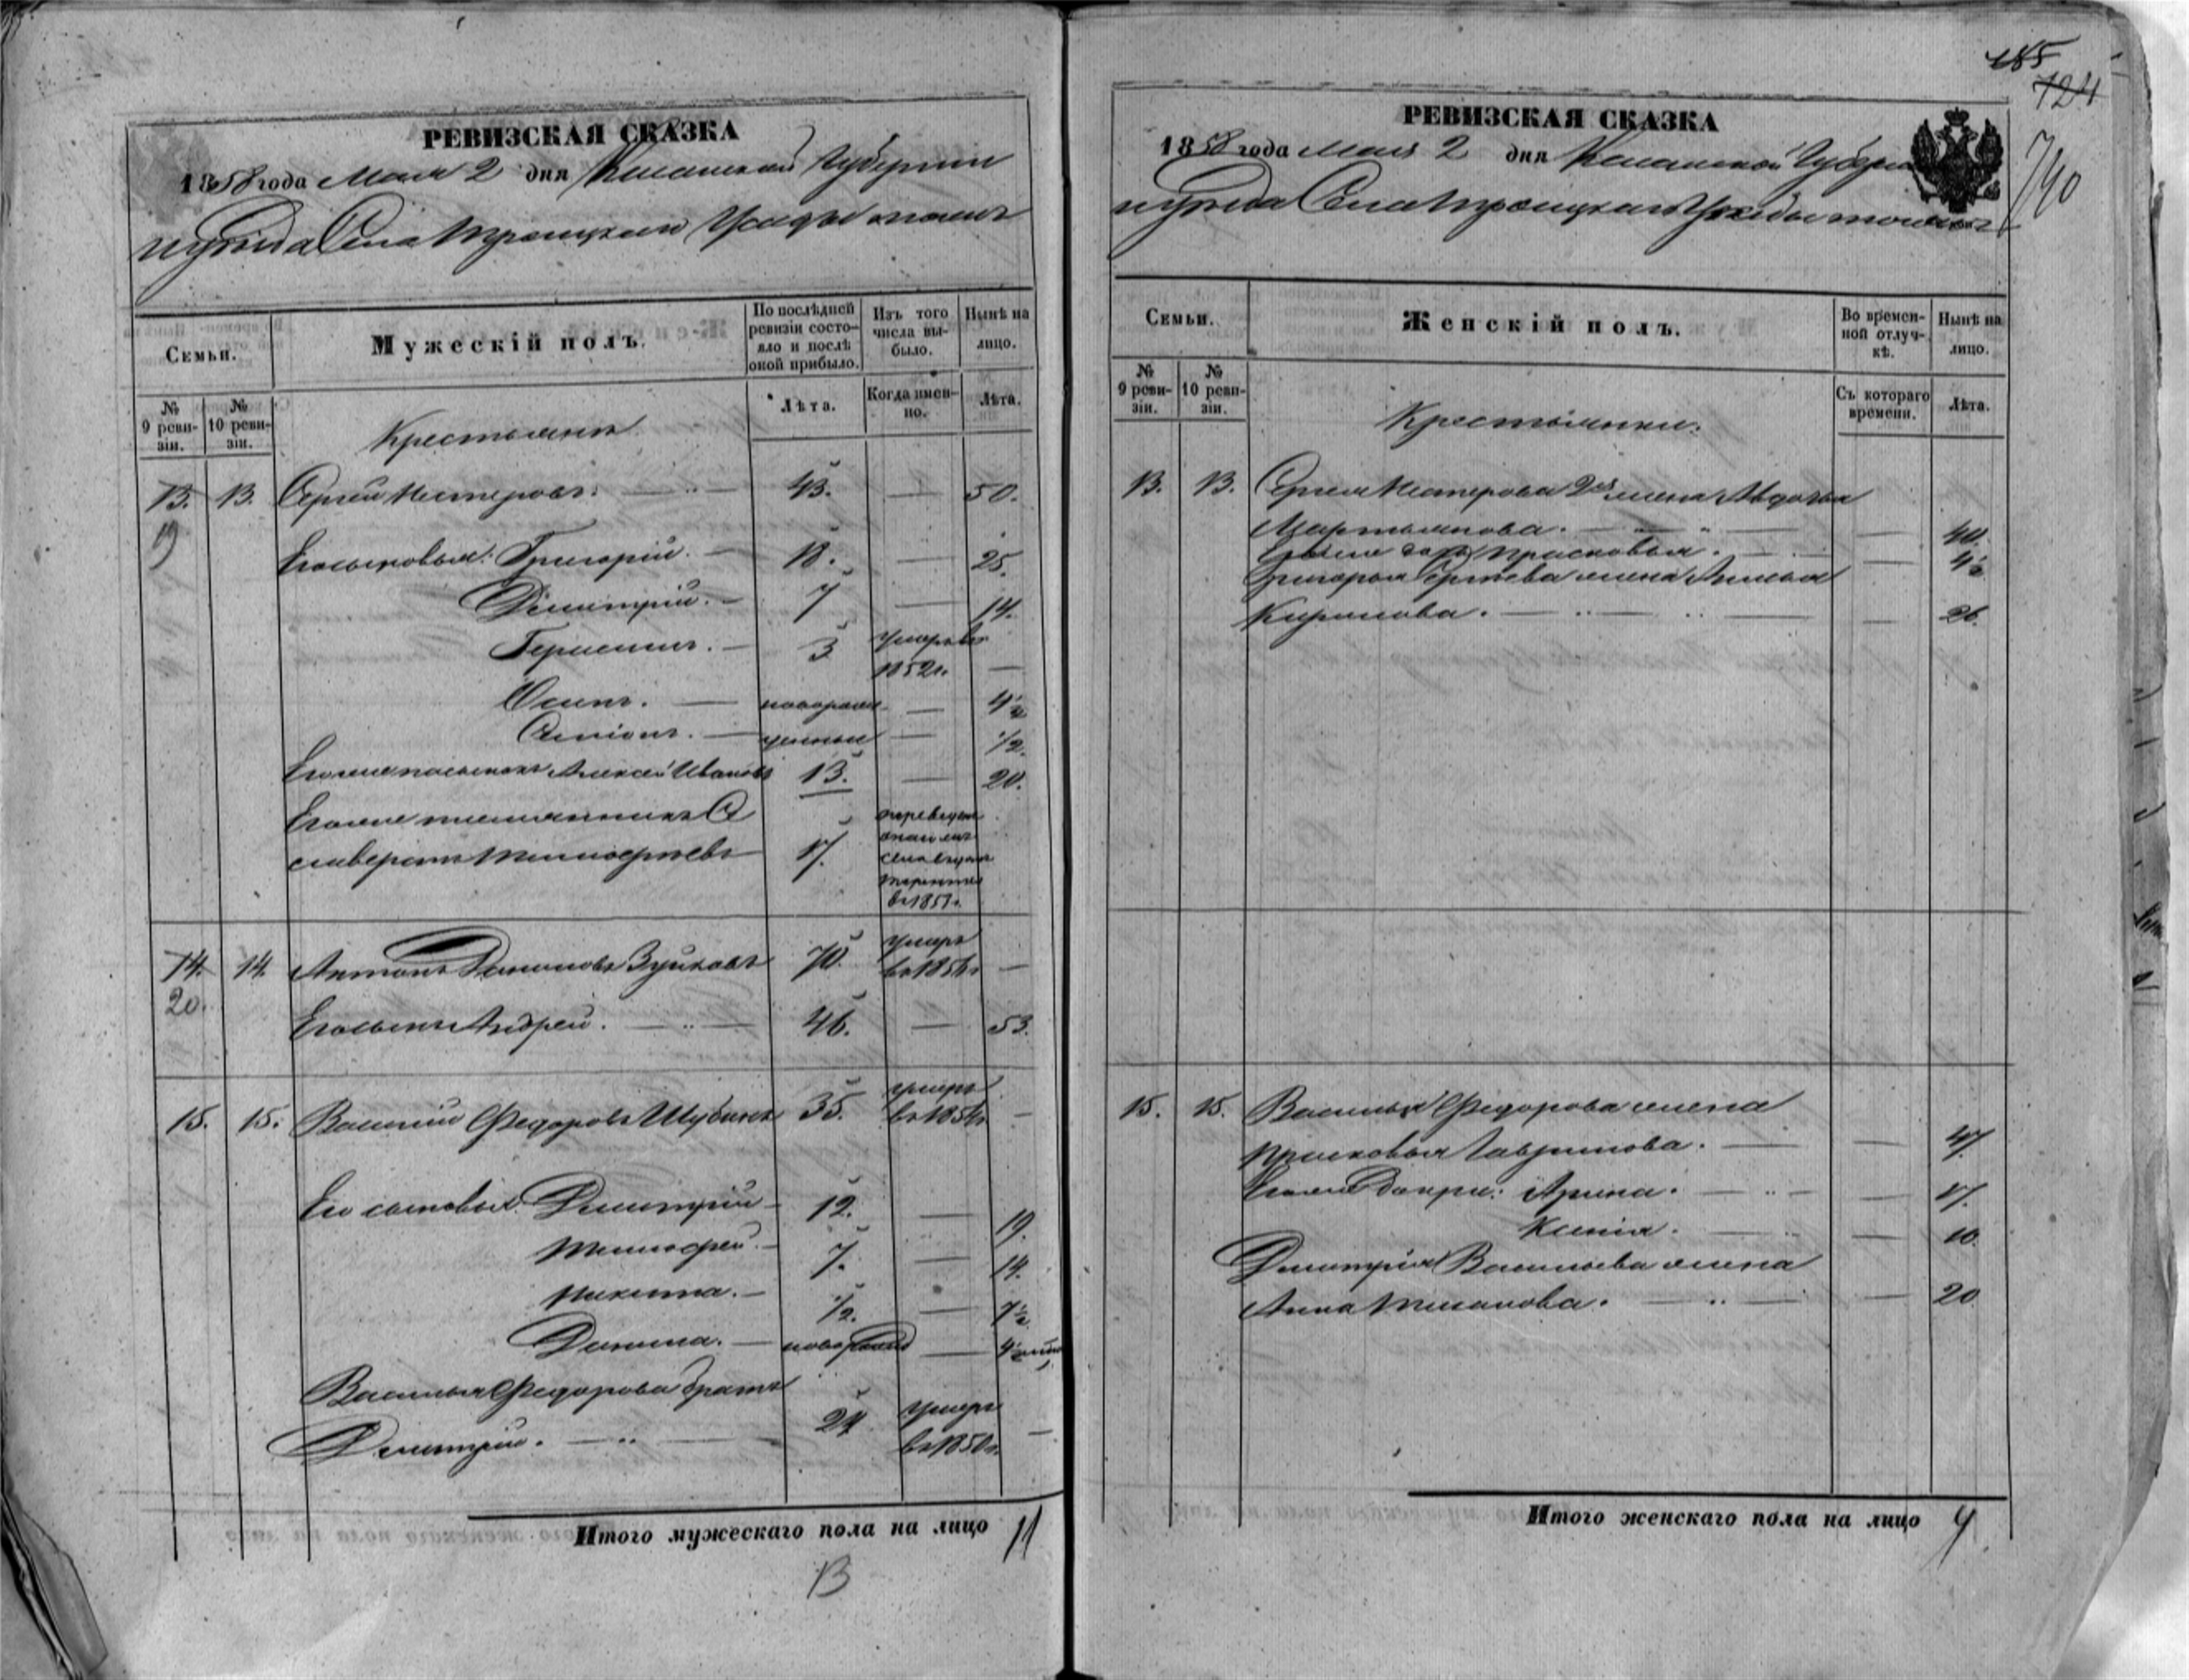 РЕВИЗСКАЯ СКАЗКА
1858 года Мая 2 дня Казанской Губернии
уѣзда Села Троицкаго Урайды тожъ
Семьи.
Мужескій полъ.
По послѣдней ревизіи состояло и послѣ оной прибыло.
Изъ того числа выбыло.
Нынѣ на лицо.
№ 9 ревизіи.
№ 10 ревизіи.
Крестьяне
Лѣта.
Когда именно.
Лѣта.
13. 13. Сергей Нестеровъ. 43. — 50.
19
Его сыновья: Григорій. 18. — 25.
Димитрій. 7 — 14.
Герасимъ. 3 умеръ въ
1852г. —
Осипъ. — новорож — 4½
Семіонъ. — денные — ½
Его же пасынокъ Алексей Ивановъ 13. — 20.
Его же племянникъ Се
ливерстъ Тимофеевъ 17. переведенъ
въ 1851г.
14. 14. Антонъ Романовъ Зуйковъ 70. умеръ
въ 1856г —
20.
Его сынъ Андрей. 46. — 53.
15. 15. Василій Федоровъ Шубинъ 35. умеръ
въ 1856г —
Его сыновья: Димитрій 12. — 19.
Тимофей. 7. — 14.
Никита. ½. — 7½
Данила. — новорожд — 4½
Василья Федорова братъ
Димитрій. 24 умеръ
въ 1850г. —
Итого мужескаго пола на лицо 11
13
185
724
790
РЕВИЗСКАЯ СКАЗКА
1858 года Мая 2 дня Казанской Губерніи
уѣзда Села Троицкаго Урайды тожъ
Семьи.
Женскій полъ.
Во временной отлучкѣ.
Нынѣ на лицо.
№ 9 ревизіи.
№ 10 ревизіи.
Крестьянки.
Съ котораго времени.
Лѣта.
13. 13. Сергея Нестерова 2я жена Авдотья
Мартьянова. — 40.
Его же дочь Прасковья. — 4½
Григорья Сергѣева жена Анисья
Кирилова. — 26.
15. 15. Василья Федорова жена
Прасковья Гаврилова. — 47.
Его же дочери: Арина. — 17.
Ксенія. — 10.
Димитрія Васильева жена
Анна Степанова. — 20
Итого женскаго пола на лицо 7